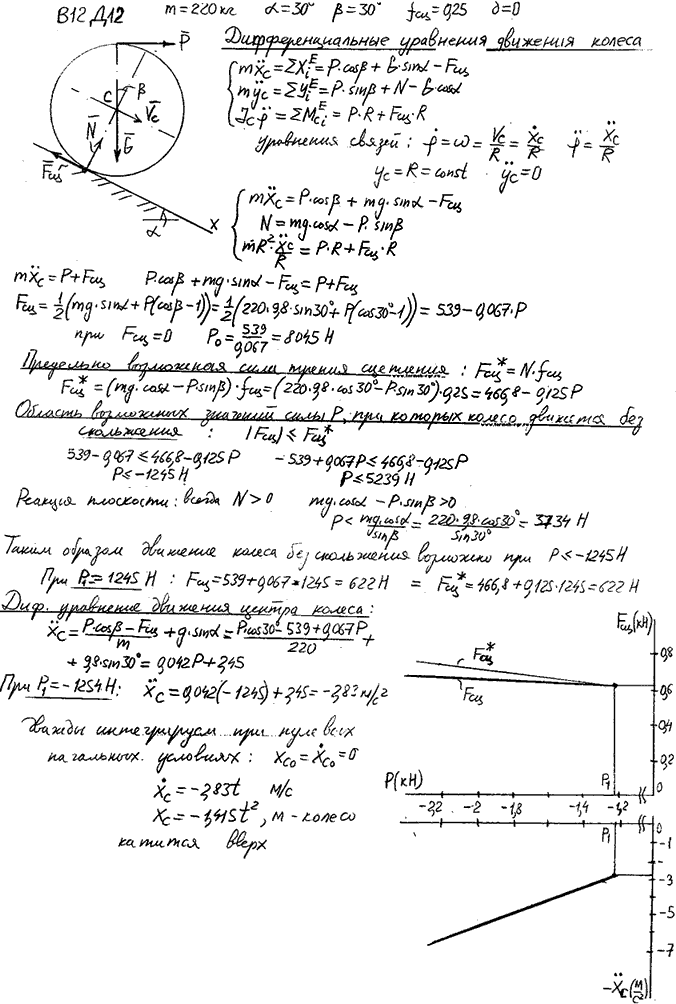 В12 Д12 m=220кг α=30° β=30° fсц=0,25 δ=0
Дифференциальные уравнения движения колеса
P̄
C β
V̄c
N̄
Ḡ
F̄сц
α
x
mẍc=ΣXᵢᴱ=P·cosβ+G·sinα−Fсц
mÿc=Σyᵢᴱ=P·sinβ+N−G·cosα
Jcφ̈=ΣMciᴱ=P·R+Fсц·R
уравнения связей: φ̇=ω=Vc/R=ẋc/R φ̈=ẍc/R
yc=R=const ÿc=0
mẍc=P·cosβ+mg·sinα−Fсц
N=mg·cosα−P·sinβ
mR²·ẍc/R=P·R+Fсц·R
mẍc=P+Fсц P·cosβ+mg·sinα−Fсц=P+Fсц
Fсц=1/2(mg·sinα+P(cosβ−1))=1/2(220·9,8·sin30°+P(cos30°−1))=539−0,067·P
при Fсц=0 P₀=539/0,067=8045 Н
Предельно возможная сила трения сцепления: Fсц*=N·fсц
Fсц*=(mg·cosα−P sinβ)·fсц=(220·9,8·cos30°−P sin30°)·0,25=466,8−0,125P
Область возможных значений силы P, при которых колесо движется без
скольжения: |Fсц|≤Fсц*
539−0,067≤466,8−0,125P −539+0,067P≤466,8−0,125P
P≤−1245 Н P≤5239 Н
Реакция плоскости: всегда N>0 mg·cosα−P·sinβ>0
P<mg·cosα/sinβ=220·9,8·cos30°/sin30°=3734 Н
Таким образом движение колеса без скольжения возможно при P≤−1245 Н
При P₁=1245 Н: Fсц=539+0,067·1245=622 Н = Fсц*=466,8+0,125·1245=622 Н
Диф. уравнение движения центра колеса:
ẍc=P·cosβ−Fсц/m+g·sinα=P·cos30°−539+0,067P/220+
+9,8·sin30°=0,042P+2,45
При P₁=−1254 Н: ẍc=0,042(−1245)+2,45=−2,83 м/с²
Дважды интегрируем при нулевых
начальных условиях: xc0=ẋc0=0
ẋc=−2,83t м/с
xc=−1,415t², м - колесо
катится вверх
Fсц(кН)
Fсц*
Fсц
0,8
0,6
0,4
0,2
0
P(кН) P₁
−2,2 −2 −1,8 −1,4 −1,2
P₁ 0
−1
−3
−5
−7
−ẍc(м/с²)